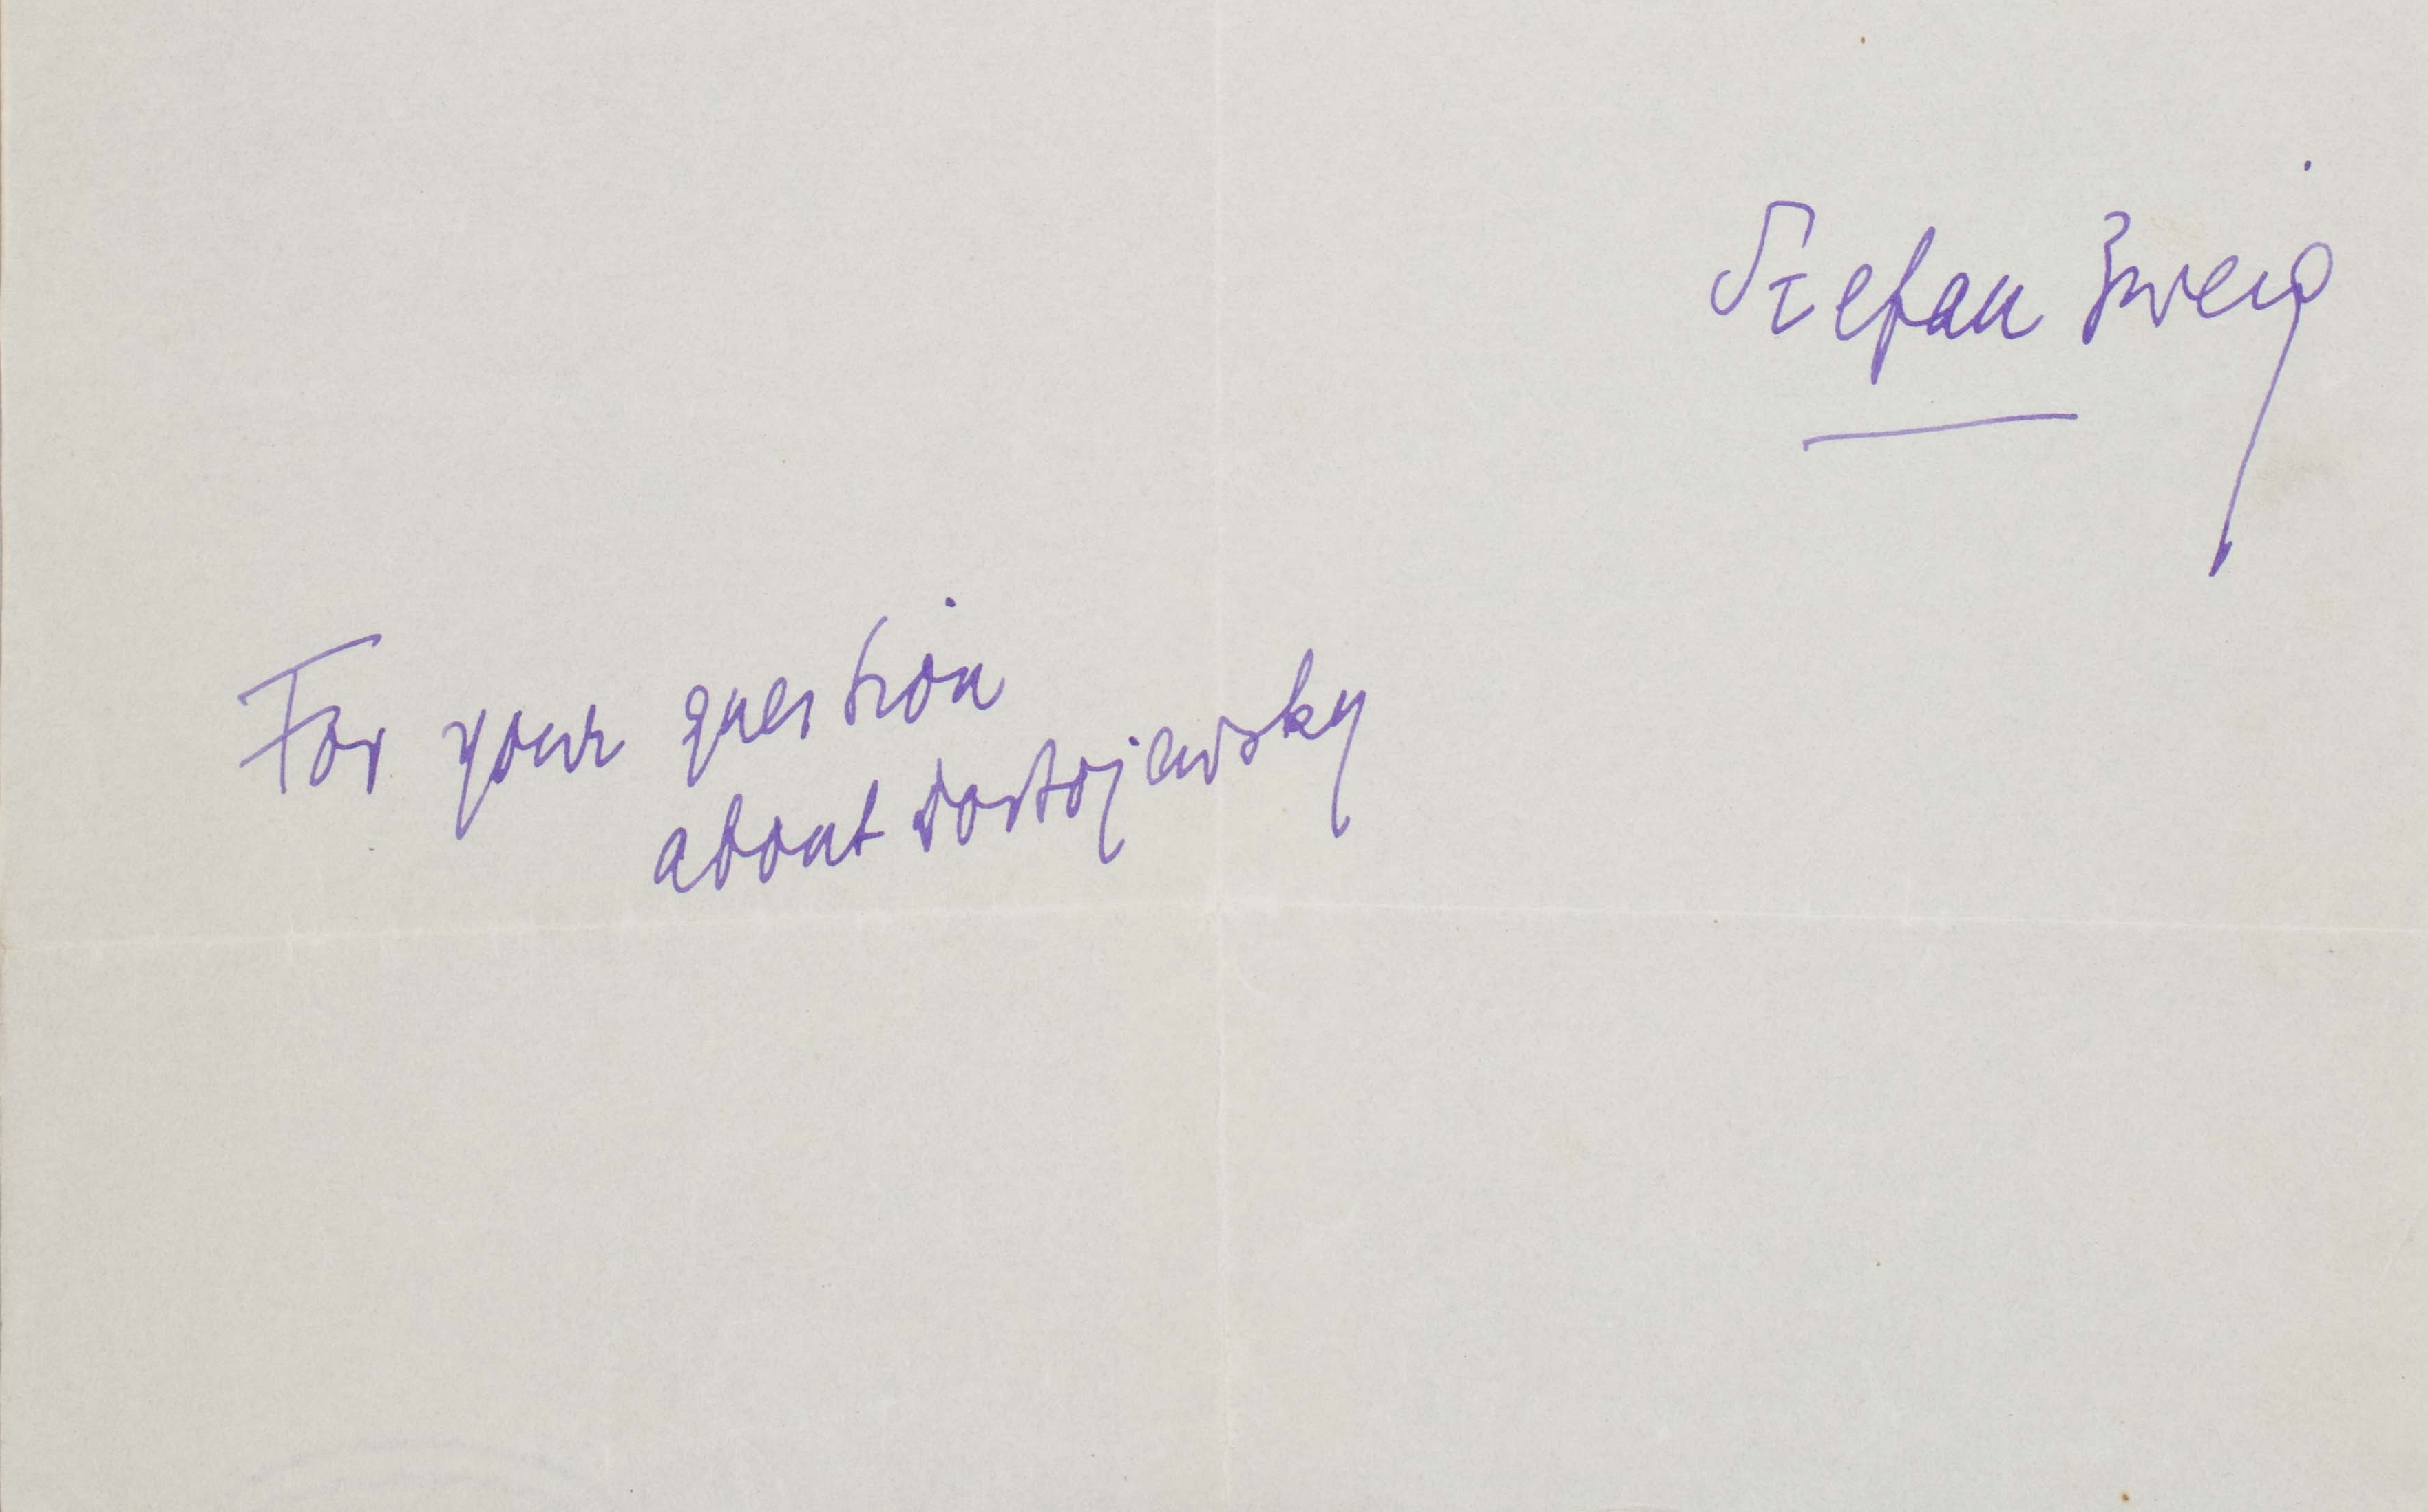 Stefan Zweig
For your question
about Dostojewsky